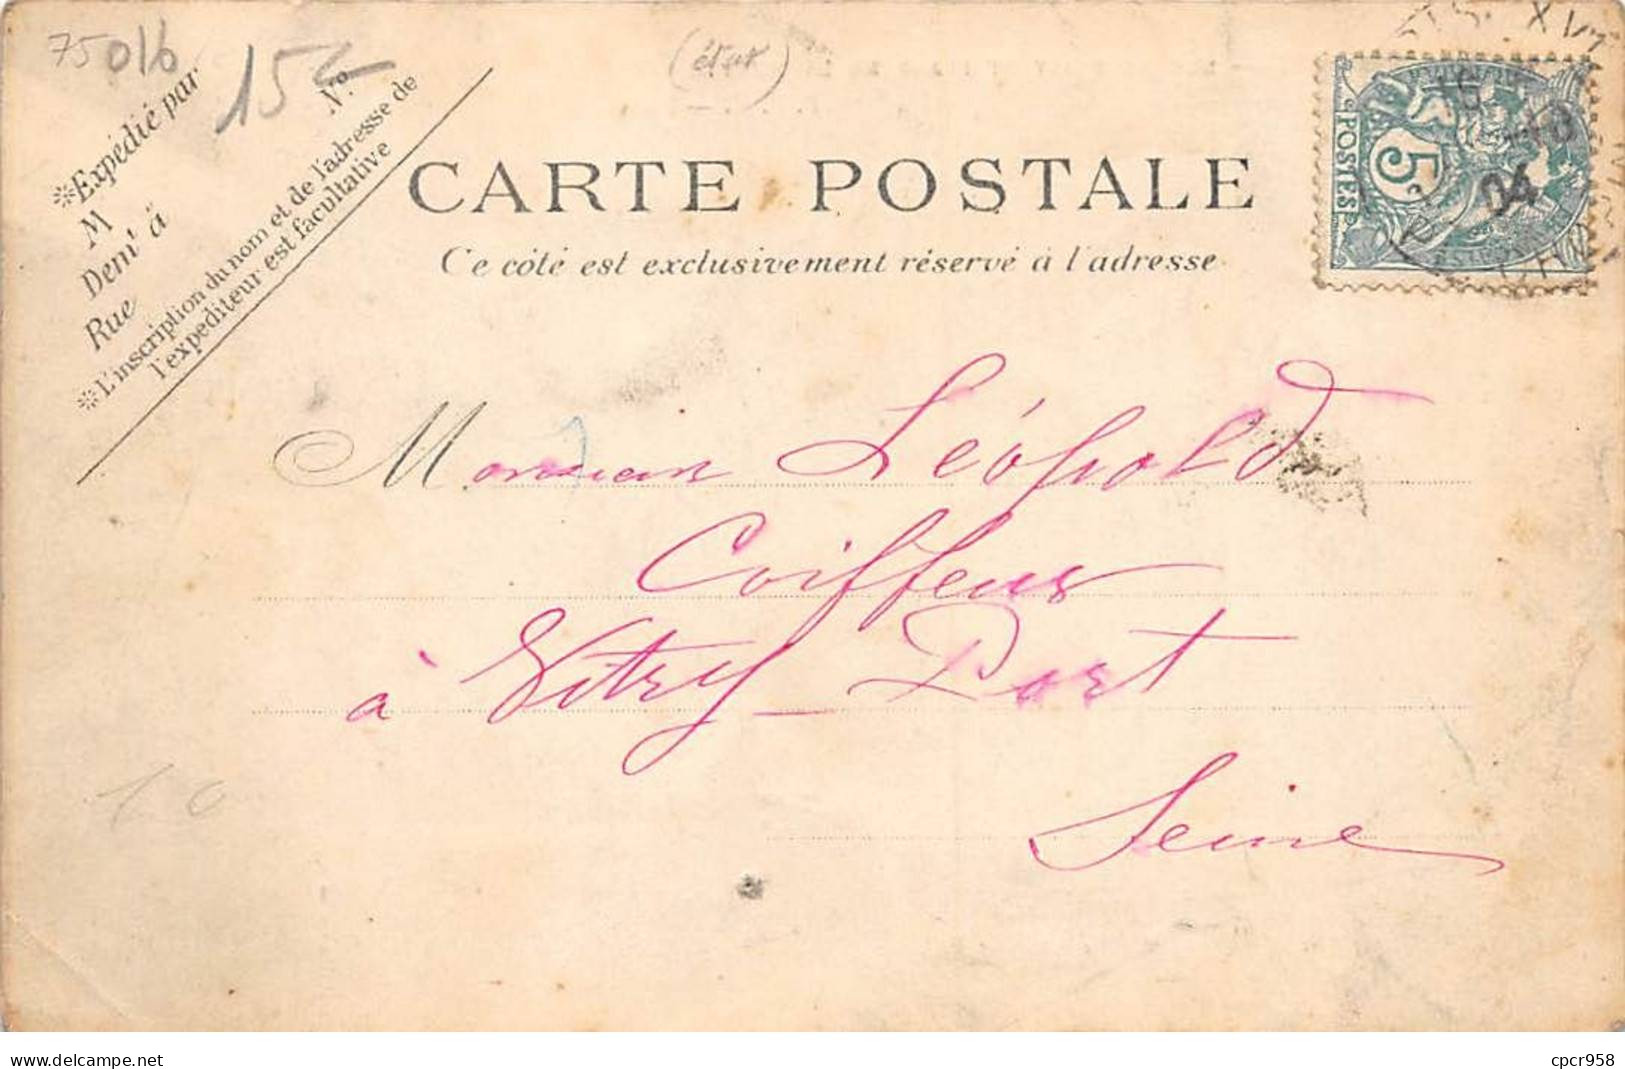 75016
15
(état)
❊Expédié par
M
Demt à
Rue
N°
❊L'inscription du nom et de l'adresse de
l'expéditeur est facultative
CARTE POSTALE
Ce côté est exclusivement réservé à l'adresse
POSTES
5c
POSTES
04
Monsieur Léopold
Coiffeur
à Vitry-Port
Seine
10
www.delcampe.net
cpcr958